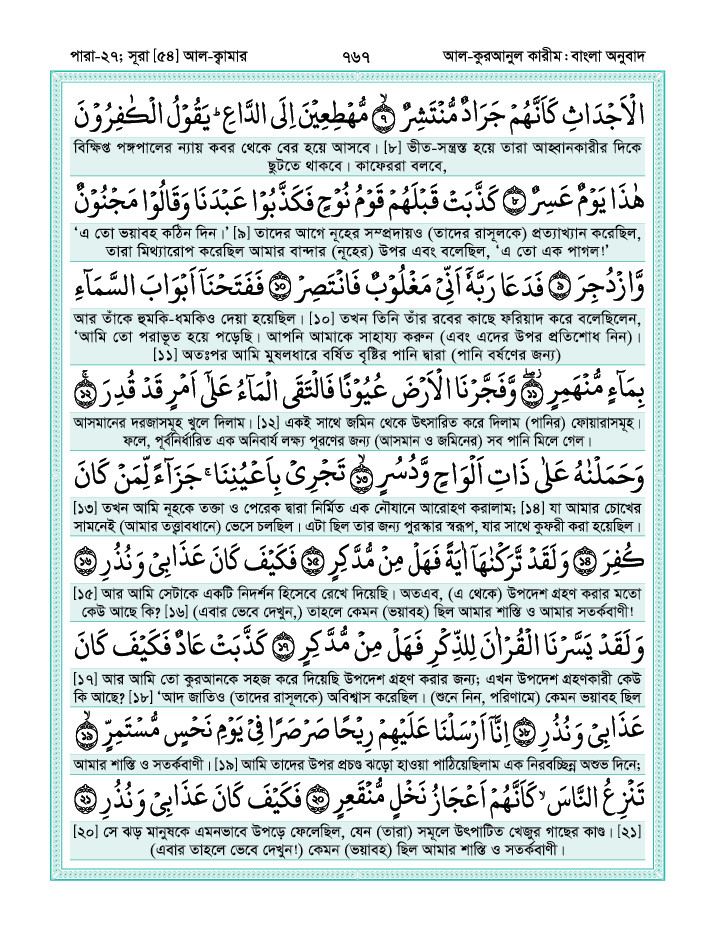 পারা-২৭; সূরা [৫৪] আল-ক্বামার ৭৬৭ আল-কুরআনুল কারীম : বাংলা অনুবাদ
الْاَجْدَاثِ كَاَنَّهُمْ جَرَادٌ مُّنْتَشِرٌ ۙ﴿۷﴾ مُّهْطِعِيْنَ اِلَى الدَّاعِ ؕ يَقُوْلُ الْكٰفِرُوْنَ
বিক্ষিপ্ত পঙ্গপালের ন্যায় কবর থেকে বের হয়ে আসবে। [৮] ভীত-সন্ত্রস্ত হয়ে তারা আহ্বানকারীর দিকে
ছুটতে থাকবে। কাফেররা বলবে,
هٰذَا يَوْمٌ عَسِرٌ ﴿۸﴾ كَذَّبَتْ قَبْلَهُمْ قَوْمُ نُوْحٍ فَكَذَّبُوْا عَبْدَنَا وَقَالُوْا مَجْنُوْنٌ
‘এ তো ভয়াবহ কঠিন দিন।’ [৯] তাদের আগে নূহের সম্প্রদায়ও (তাদের রাসূলকে) প্রত্যাখ্যান করেছিল,
তারা মিথ্যারোপ করেছিল আমার বান্দার (নূহের) উপর এবং বলেছিল, ‘এ তো এক পাগল!’
وَّازْدُجِرَ ﴿۹﴾ فَدَعَا رَبَّهٗۤ اَنِّيْ مَغْلُوْبٌ فَانْتَصِرْ ﴿۱۰﴾ فَفَتَحْنَاۤ اَبْوَابَ السَّمَآءِ
আর তাঁকে হুমকি-ধমকিও দেয়া হয়েছিল। [১০] তখন তিনি তাঁর রবের কাছে ফরিয়াদ করে বলেছিলেন,
‘আমি তো পরাভূত হয়ে পড়েছি। আপনি আমাকে সাহায্য করুন (এবং এদের উপর প্রতিশোধ নিন)।
[১১] অতঃপর আমি মুষলধারে বর্ষিত বৃষ্টির পানি দ্বারা (পানি বর্ষণের জন্য)
بِمَآءٍ مُّنْهَمِرٍ ﴿۱۱﴾ وَّفَجَّرْنَا الْاَرْضَ عُيُوْنًا فَالْتَقَى الْمَآءُ عَلٰۤى اَمْرٍ قَدْ قُدِرَ ﴿۱۲﴾
আসমানের দরজাসমূহ খুলে দিলাম। [১২] একই সাথে জমিন থেকে উৎসারিত করে দিলাম (পানির) ফোয়ারাসমূহ।
ফলে, পূর্বনির্ধারিত এক অনিবার্য লক্ষ্য পূরণের জন্য (আসমান ও জমিনের) সব পানি মিলে গেল।
وَحَمَلْنٰهُ عَلٰى ذَاتِ اَلْوَاحٍ وَّدُسُرٍ ۙ﴿۱۳﴾ تَجْرِيْ بِاَعْيُنِنَا ۚ جَزَآءً لِّمَنْ كَانَ
[১৩] তখন আমি নূহকে তক্তা ও পেরেক দ্বারা নির্মিত এক নৌযানে আরোহণ করালাম; [১৪] যা আমার চোখের
সামনেই (আমার তত্ত্বাবধানে) ভেসে চলছিল। এটা ছিল তার জন্য পুরস্কার স্বরূপ, যার সাথে কুফরী করা হয়েছিল।
كُفِرَ ﴿۱۴﴾ وَلَقَدْ تَّرَكْنٰهَاۤ اٰيَةً فَهَلْ مِنْ مُّدَّكِرٍ ﴿۱۵﴾ فَكَيْفَ كَانَ عَذَابِيْ وَنُذُرِ ﴿۱۶﴾
[১৫] আর আমি সেটাকে একটি নিদর্শন হিসেবে রেখে দিয়েছি। অতএব, (এ থেকে) উপদেশ গ্রহণ করার মতো
কেউ আছে কি? [১৬] (এবার ভেবে দেখুন,) তাহলে কেমন (ভয়াবহ) ছিল আমার শাস্তি ও আমার সতর্কবাণী!
وَلَقَدْ يَسَّرْنَا الْقُرْاٰنَ لِلذِّكْرِ فَهَلْ مِنْ مُّدَّكِرٍ ﴿۱۷﴾ كَذَّبَتْ عَادٌ فَكَيْفَ كَانَ
[১৭] আর আমি তো কুরআনকে সহজ করে দিয়েছি উপদেশ গ্রহণ করার জন্য; এখন উপদেশ গ্রহণকারী কেউ
কি আছে? [১৮] ‘আদ জাতিও (তাদের রাসূলকে) অবিশ্বাস করেছিল। (শুনে নিন, পরিণামে) কেমন ভয়াবহ ছিল
عَذَابِيْ وَنُذُرِ ﴿۱۸﴾ اِنَّاۤ اَرْسَلْنَا عَلَيْهِمْ رِيْحًا صَرْصَرًا فِيْ يَوْمِ نَحْسٍ مُّسْتَمِرٍّ ۙ﴿۱۹﴾
আমার শাস্তি ও সতর্কবাণী। [১৯] আমি তাদের উপর প্রচণ্ড ঝড়ো হাওয়া পাঠিয়েছিলাম এক নিরবচ্ছিন্ন অশুভ দিনে;
تَنْزِعُ النَّاسَ ۙ كَاَنَّهُمْ اَعْجَازُ نَخْلٍ مُّنْقَعِرٍ ﴿۲۰﴾ فَكَيْفَ كَانَ عَذَابِيْ وَنُذُرِ ﴿۲۱﴾
[২০] সে ঝড় মানুষকে এমনভাবে উপড়ে ফেলেছিল, যেন (তারা) সমূলে উৎপাটিত খেজুর গাছের কাণ্ড। [২১]
(এবার তাহলে ভেবে দেখুন!) কেমন (ভয়াবহ) ছিল আমার শাস্তি ও সতর্কবাণী।